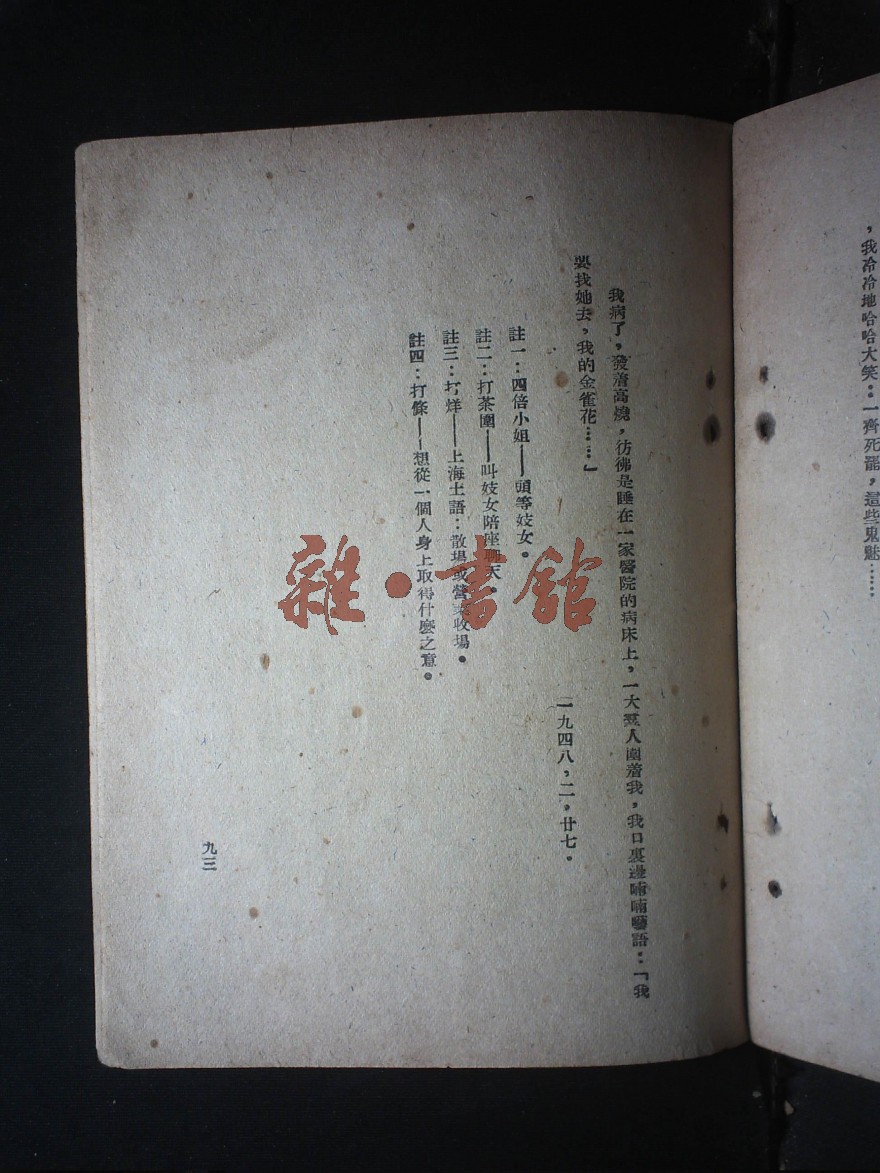 ，我冷冷地哈哈大笑：一齊死罷，這些鬼魅……
我病了，發着高燒，彷彿是睡在一家醫院的病床上，一大羣人圍着我，我口裏還喃喃囈語：「我
要找她去，我的金雀花……」
一九四八，二，廿七。
註一：四倍小姐——頭等妓女。
註二：打茶圍——叫妓女陪座聊天。
註三：打烊——上海土語：散場或營業收場。
註四：打條——想從一個人身上取得什麼之意。
九三
雜·書館